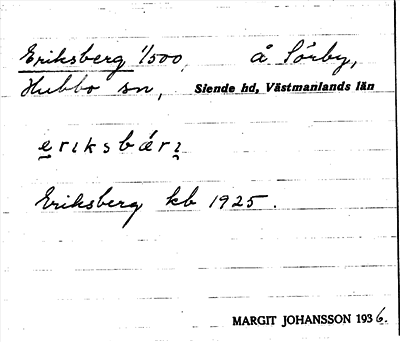 Eriksberg 1/500, å Sörby,
Hubbo sn, Siende hd, Västmanlands län
eriksbǽri
Eriksberg kb 1925.
MARGIT JOHANSSON 1936.